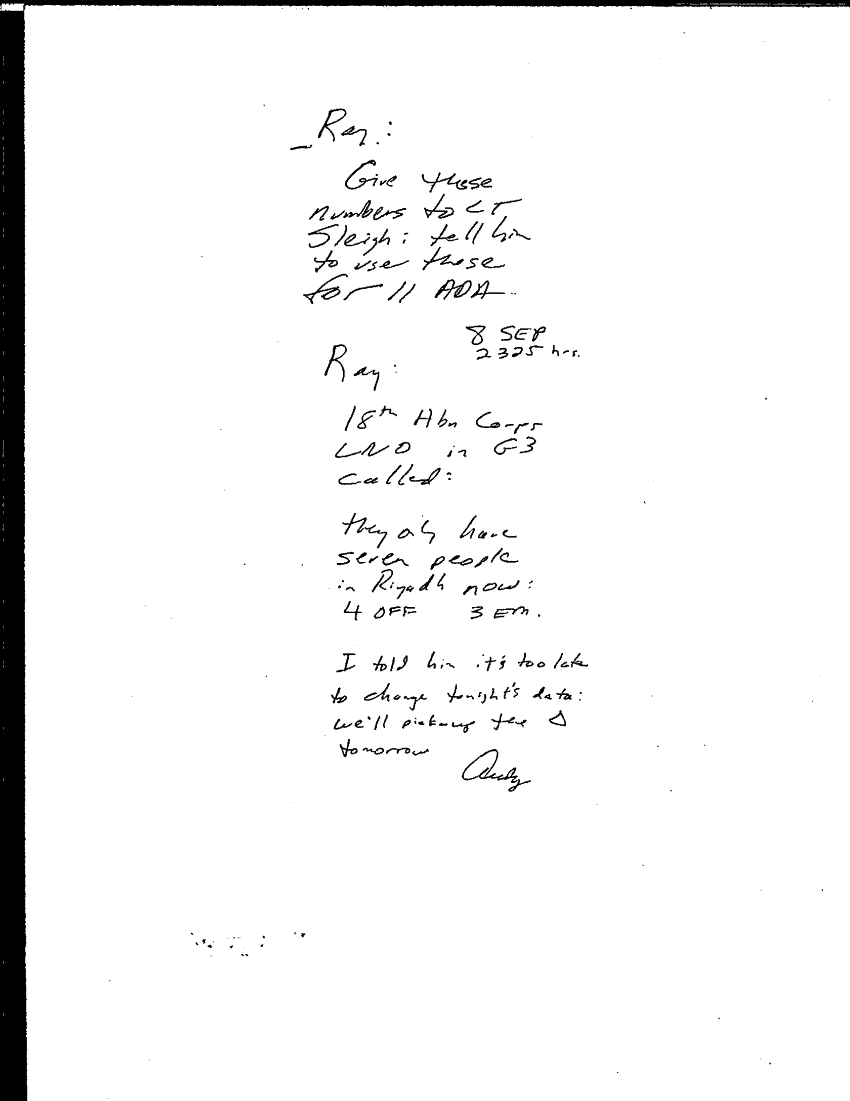 Ray:
Give these
numbers to LT
Sleigh; tell him
to use these
for 11 ADA.
8 SEP
2325 hrs.
Ray:
18th Abn Corps
LNO in G3
called:
they only have
seven people
in Riyadh now:
4 OFF 3 EM.
I told him it's too late
to change tonight's data:
we'll pickup the Δ
tomorrow
Andy